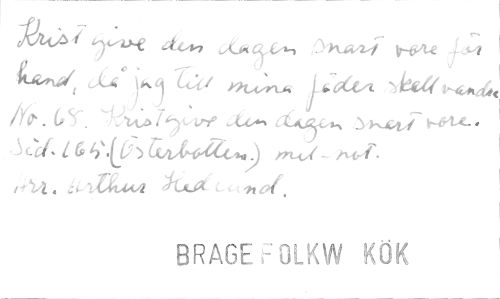 Krist give den dagen snart vore för
hand, då jag till mina fäder skall vandra
No. 68. Krist give den dagen snart vore.
Sid. 165. (Österbotten.) mel-not.
Arr. Arthur Hedlund.
BRAGE FOLKW KÖK